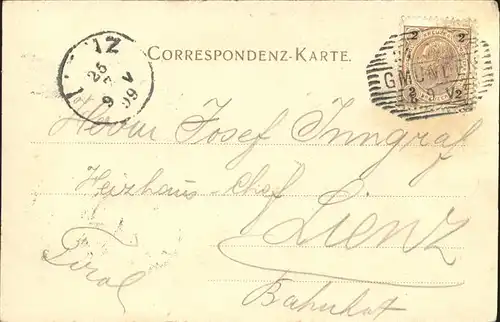 CORRESPONDENZ-KARTE.
2 2
GMÜND
2 2
25
9
99
Herrn Josef Inngraf
Heizhaus-Chef
Lienz
Tirol
Bahnhof